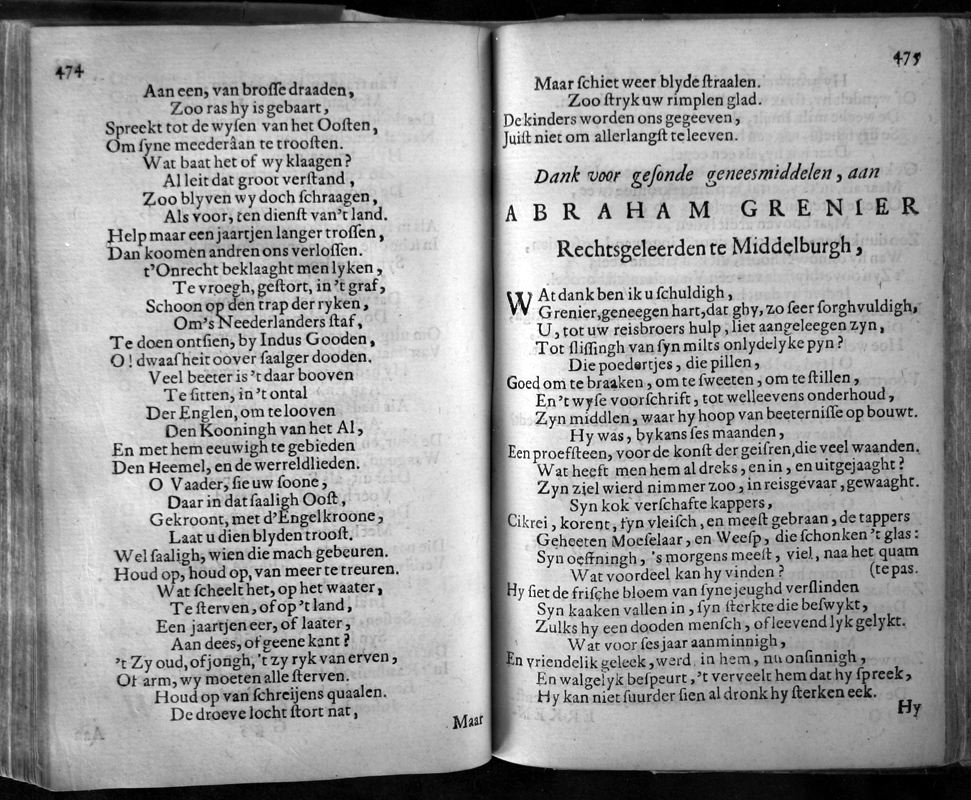 474
Aan een, van brosse draaden,
Zoo ras hy is gebaart,
Spreekt tot de wysen van het Oosten,
Om syne meederâan te troosten.
Wat baat het of wy klaagen?
Al leit dat groot verstand,
Zoo blyven wy doch schraagen,
Als voor, ten dienst van't land.
Help maar een jaartjen langer trossen,
Dan koomen andren ons verlossen.
t'Onrecht beklaaght men lyken,
Te vroegh, gestort, in 't graf,
Schoon op den trap der ryken,
Om's Neederlanders staf,
Te doen ontsien, by Indus Gooden,
O! dwaasheit oover saalger dooden.
Veel beeter is 't daar booven
Te sitten, in 't ontal
Der Englen, om te looven
Den Kooningh van het Al,
En met hem eeuwigh te gebieden
Den Heemel, en de werreldlieden.
O Vaader, sie uw soone,
Daar in dat saaligh Oost,
Gekroont, met d'Engelkroone,
Laat u dien blyden troost.
Wel saaligh, wien die mach gebeuren.
Houd op, houd op, van meer te treuren.
Wat scheelt het, op het waater,
Te sterven, of op 't land,
Een jaartjen eer, of laater,
Aan dees, of geene kant?
't Zy oud, of jongh, 't zy ryk van erven,
Of arm, wy moeten alle sterven.
Houd op van schreijens quaalen.
De droeve locht stort nat,
Maar
475
Maar schiet weer blyde straalen.
Zoo stryk uw rimplen glad.
De kinders worden ons gegeeven,
Juist niet om allerlangst te leeven.
Dank voor gesonde geneesmiddelen, aan
ABRAHAM GRENIER
Rechtsgeleerden te Middelburgh,
WAt dank ben ik u schuldigh,
Grenier, geneegen hart, dat ghy, zo seer sorghvuldigh,
U, tot uw reisbroers hulp, liet aangeleegen zyn,
Tot slissingh van syn milts onlydelyke pyn?
Die poedertjes, die pillen,
Goed om te braaken, om te sweeten, om te stillen,
En 't wyse voorschrift, tot wellevens onderhoud,
Zyn midlen, waar hy hoop van beeternisse op bouwt.
Hy was, by kans ses maanden,
Een proefsteen, voor de konst der geisren, die veel waanden.
Wat heeft men hem al dreks, en in, en uitgejaaght?
Zyn ziel wierd nimmer zoo, in reisgevaar, gewaaght.
Syn kok verschafte kappers,
Cikrei, korent, fyn vleisch, en meest gebraan, de tappers
Geheeten Moeselaar, en Weesp, die schonken 't glas:
Syn oeffningh, 's morgens meest, viel, naa het quam
Wat voordeel kan hy vinden? (te pas.
Hy siet de frische bloem van syne jeughd verslinden
Syn kaaken vallen in, syn sterkte die beswykt,
Zulks hy een dooden mensch, of leevend lyk gelykt.
Wat voor ses jaar aanminnigh,
En vriendelik geleek, werd, in hem, nu onsinnigh,
En walgelyk bespeurt, 't verveelt hem dat hy spreek,
Hy kan niet suurder sien al dronk hy sterken eek.
Hy